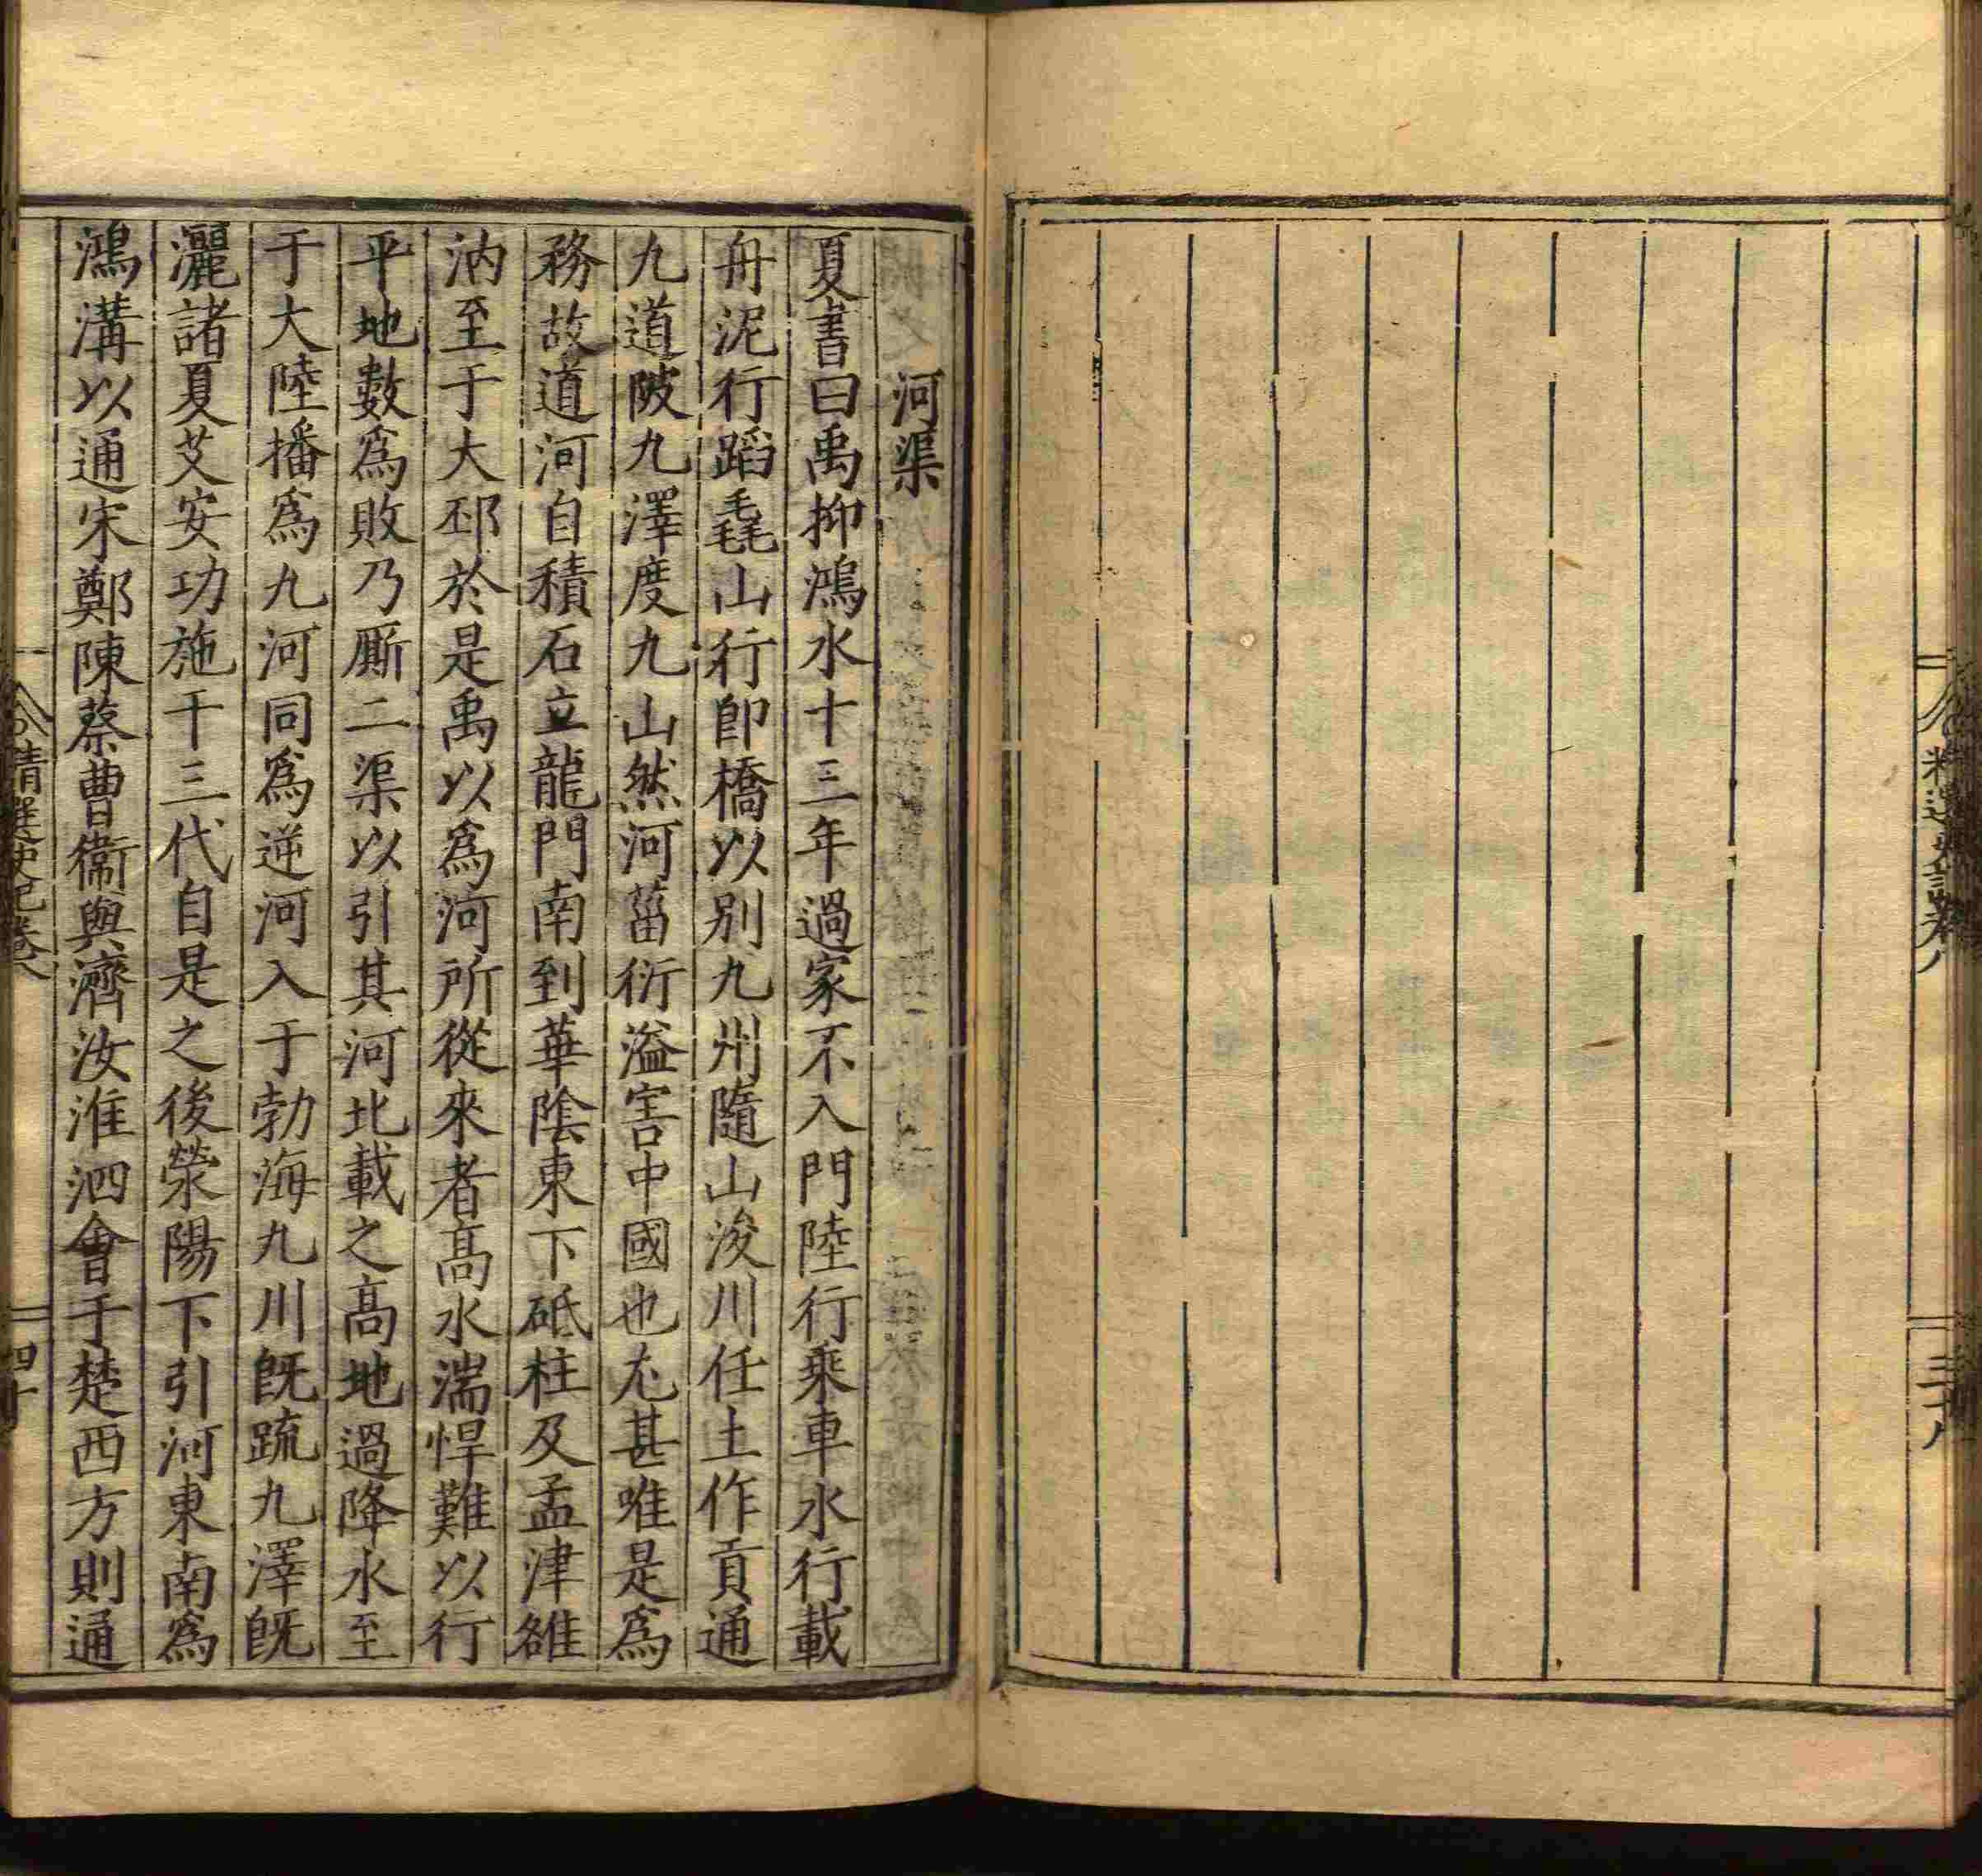 精選史記卷八
三十八
河渠
夏書曰禹抑鴻水十三年過家不入門陸行乘車水行載
舟泥行蹈毳山行卽橋以别九州隨山浚川任土作貢通
九道陂九澤度九山然河菑衍溢害中國也尤甚唯是爲
務故道河自積石立龍門南到華陰東下砥柱及孟津雒
汭至于大邳於是禹以爲河所從來者高水湍悍難以行
平地數爲敗乃厮二渠以引其河北載之高地過降水至
于大陸播爲九河同爲逆河入于勃海九川旣疏九澤旣
灑諸夏艾安功施千三代自是之後滎陽下引河東南爲
鴻溝以通宋鄭陳蔡曹衞與濟汝淮泗會于楚西方則通
精選史記卷八
四十